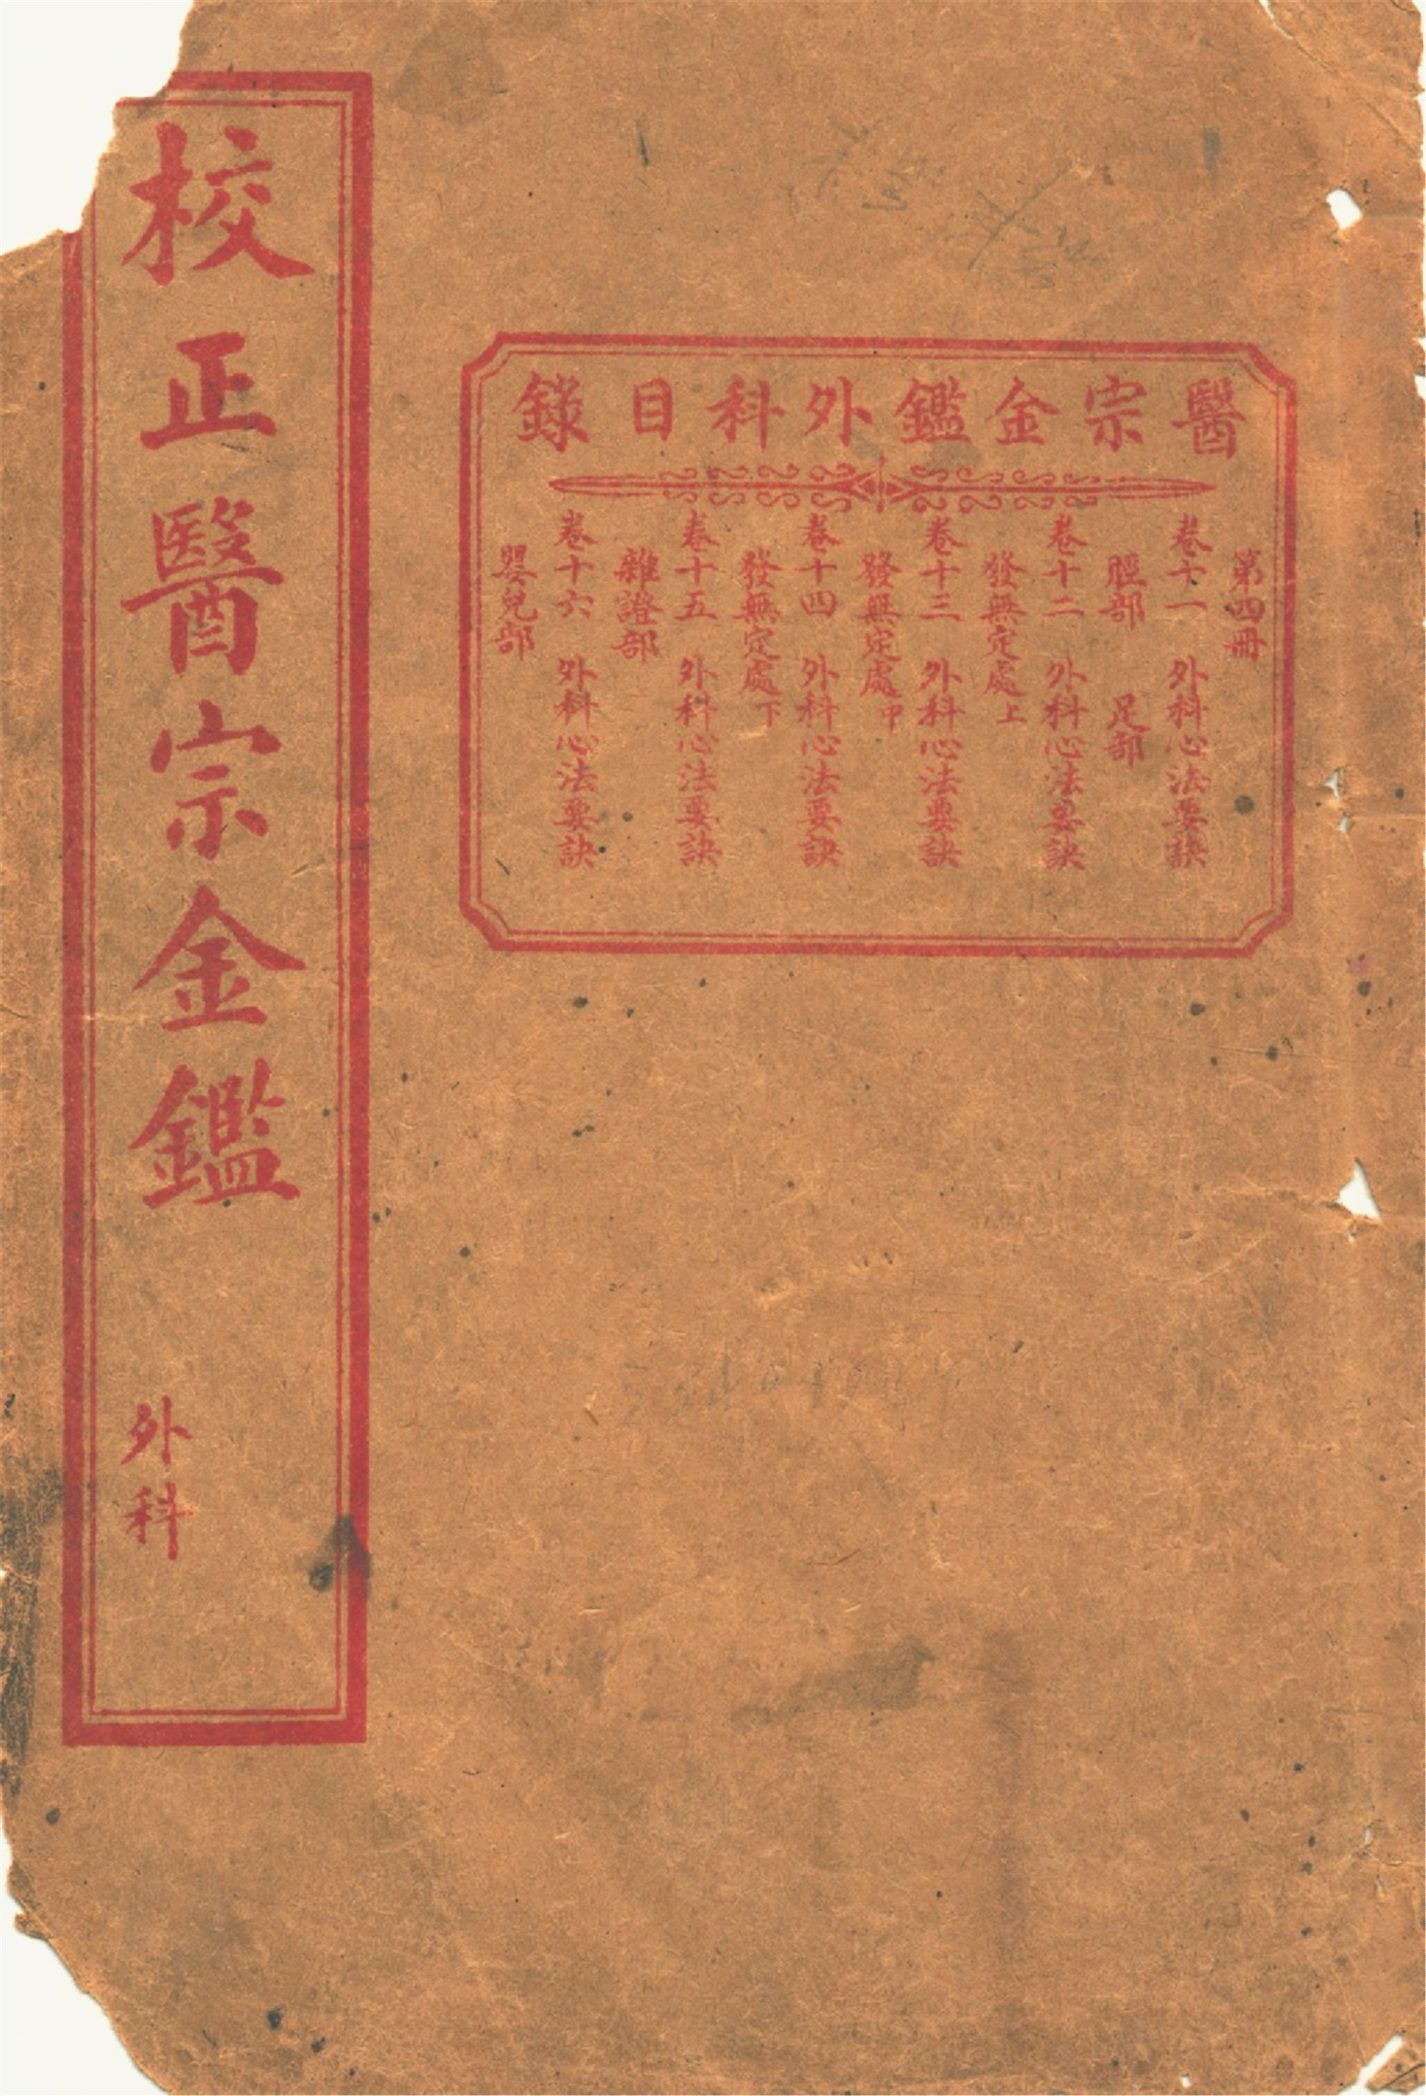 校正醫宗金鑑
外科
醫宗金鑑外科目錄
第四冊
卷十一 外科心法要訣
脛部 足部
卷十二 外科心法要訣
發無定處上
卷十三 外科心法要訣
發無定處中
卷十四 外科心法要訣
發無定處下
卷十五 外科心法要訣
雜證部
卷十六 外科心法要訣
嬰兒部